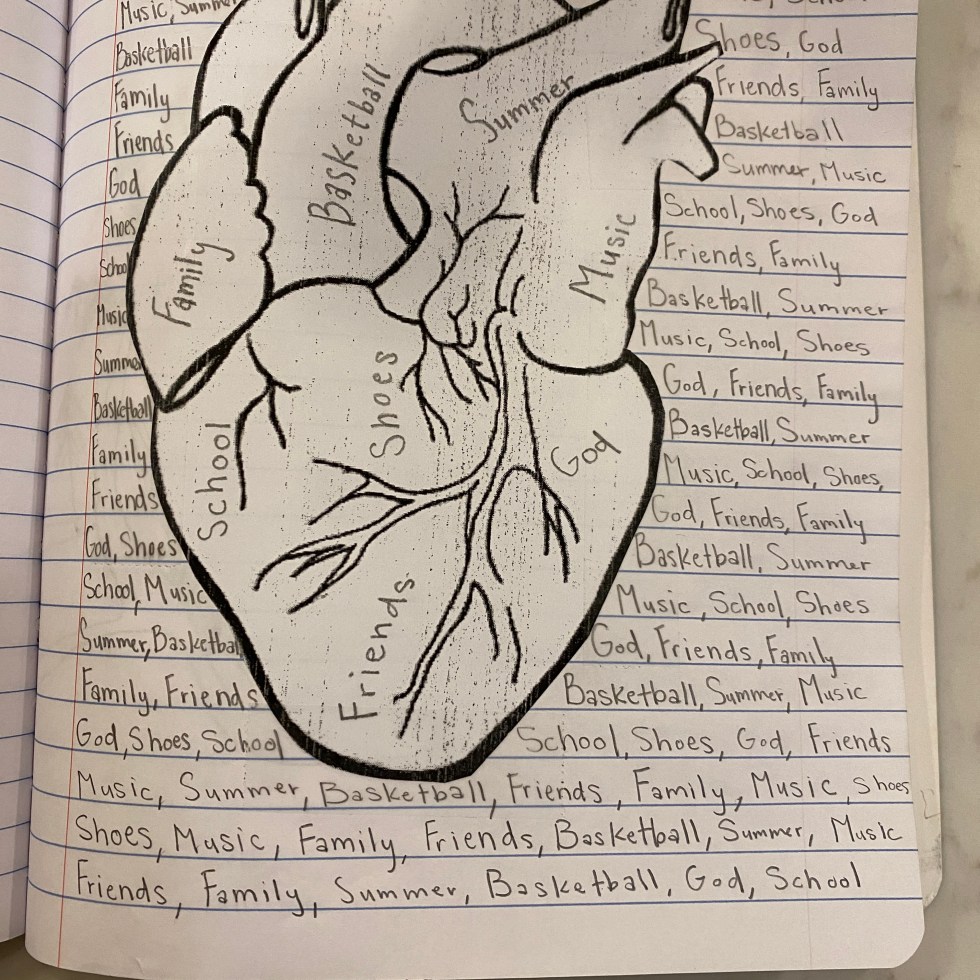 Music, Summer
Shoes, God
Basketball
Friends, Family
Family
Basketball
Friends
Summer, Music
God
School, Shoes, God
Shoes
Friends, Family
School
Basketball, Summer
Music
Music, School, Shoes
Summer
God, Friends, Family
Basketball
Basketball, Summer
Family
Music, School, Shoes,
Friends
God, Friends, Family
God, Shoes
Basketball, Summer
School, Music
Music, School, Shoes
Summer, Basketball
God, Friends, Family
Family, Friends
Basketball, Summer, Music
God, Shoes, School
School, Shoes, God, Friends
Music, Summer, Basketball, Friends, Family, Music, Shoes
Shoes, Music, Family, Friends, Basketball, Summer, Music
Friends, Family, Summer, Basketball, God, School
Basketball
Summer
Family
Music
Shoes
School
God
Friends